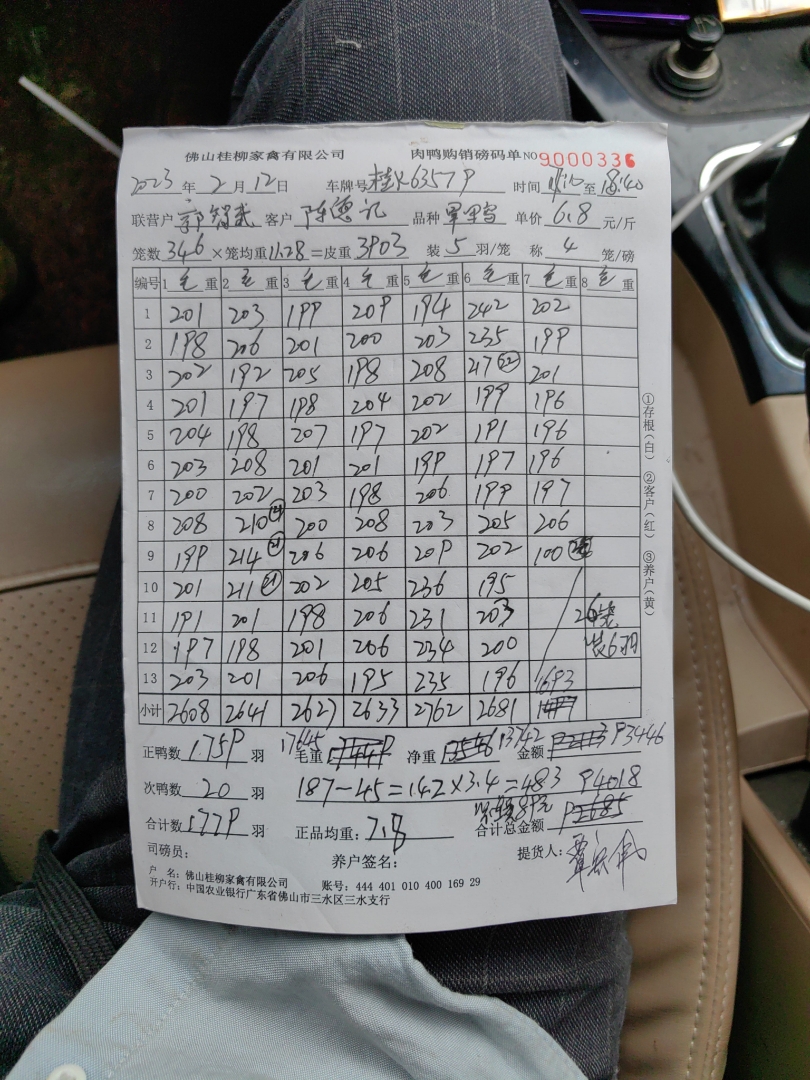 佛山桂柳家禽有限公司 肉鸭购销磅码单 NO 9000336
2023年2月12日 车牌号 桂K6357P 时间 至 18:40
联营户 郭智武 客户 陈德记 品种 单价 6.8 元/斤
笼数 346 ×笼均重 11.28 =皮重 3903 装 5 羽/笼 称 4 笼/磅
编号 1 毛 重 2 毛 重 3 毛 重 4 毛 重 5 毛 重 6 毛 重 7 毛 重 8 毛 重
1 201 203 199 209 194 242 202
2 198 206 201 200 203 235 199
3 202 192 205 198 208 47 22 201
4 201 197 198 204 202 199 196
5 204 198 207 197 202 191 196
6 203 208 201 201 199 197 196
7 200 202 203 198 206 199 197
8 208 210 21 200 208 203 205 206
9 199 214 21 206 206 209 202 100
10 201 211 21 202 205 236 195
11 191 201 198 206 231 203 26笼
12 197 198 201 206 234 200 装6羽
13 203 201 206 195 235 196 1693
小计 2608 2641 2627 2633 2762 2681
正鸭数 1759 羽 毛重 17645 净重 13742 金额 93446
次鸭数 20 羽 187-45=142×3.4=483 94018
89元
合计数 1779 羽 正品均重: 7.8 合计总金额
司磅员: 养户签名: 提货人:
户 名: 佛山桂柳家禽有限公司 账号: 444 401 010 400 169 29
开户行: 中国农业银行广东省佛山市三水区三水支行
①存根(白) ②客户(红) ③养户(黄)